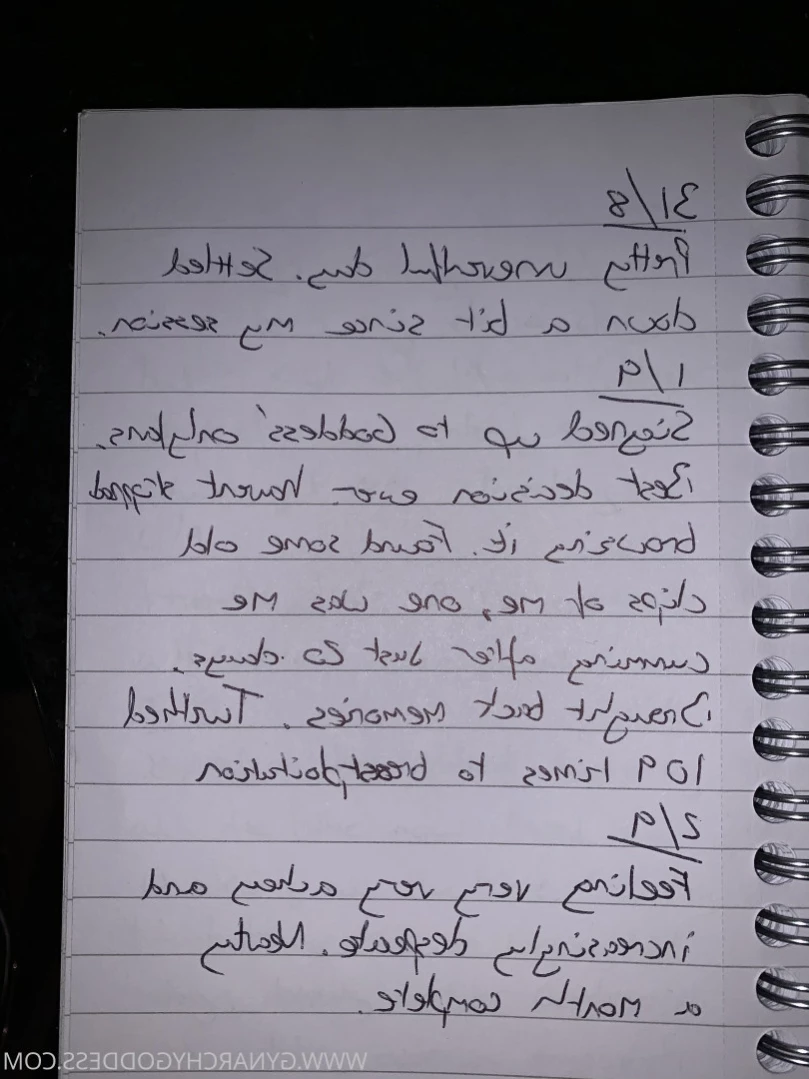 31/8
Pretty uneventful day. Settled
down a bit since my session.
1/9
Siegned up to Goddess' onlyfans.
Best decision ever. Havent stopped
browsing it. Found some old
clips of me, one was me
cumming after just 20 days.
Brought back memories. Twitched
109 times to breastploitation
2/9
Feeling very very achey and
increasingly desperate. Nearly
a month complete.
WWW.GYNARCHYGODDESS.COM